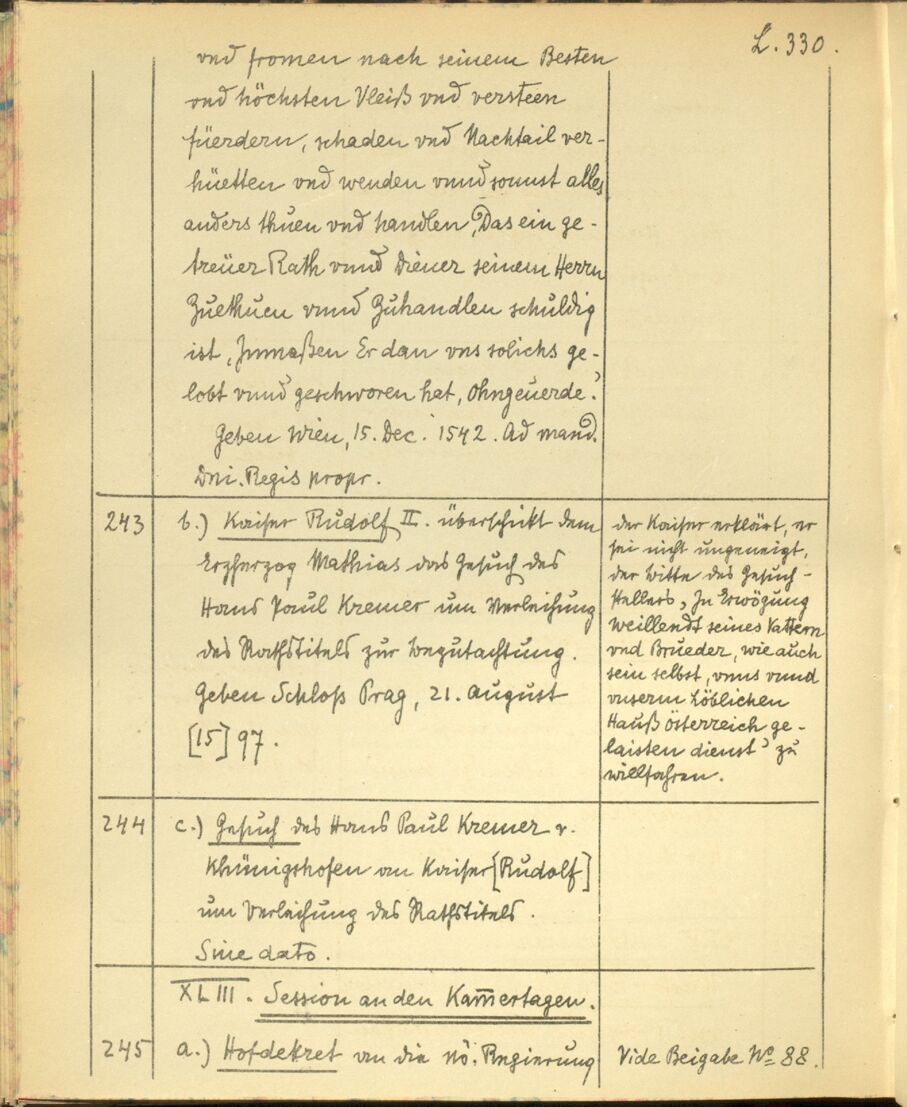 L. 330.
vnd fromen nach seinem Besten
vnd höchsten Vleiß vnd versteen
füerdern, schaden vnd Nachtail ver-
hüetten vnd wenden vnnd sonnst alles
anders thuen vnd handlen, Das ein ge-
treüer Rath vnnd Diener seinem Herrn
Zuethuen vnnd Zuhandlen schuldig
ist, Inmaßen Er dan vns solichs ge-
lobt vnnd geschworen hat, ohngeuerde.'
Geben Wien, 15. Dec. 1542. Ad mand.
Dni. Regis propr.
243 b.) Kaiser Rudolf II. überschickt dem
Erzherzog Mathias das Gesuch des
Hans Paul Kremer um Verleihung
des Rathstitels zur Begutachtung.
Geben Schloß Prag, 21. August
[15]97.
der Kaiser erklärt, er
sei nicht ungeneigt,
der Bitte des Gesuch-
stellers, 'In Erwögung
weillendt seines Vattern
vnd Brueder, wie auch
sein selbst, vnns vnnd
vnserm Löblichen
Hauß Österreich ge-
laisten dienst' zu
willfahren.
244 c.) Gesuch des Hans Paul Kremer v.
Khünigshofen an Kaiser [Rudolf]
um Verleihung des Rathstitels.
Sine dato.
XLIII. Session an den Kam̅ertagen.
245 a.) Hofdekret an die nö. Regierung
Vide Beigabe No 88.